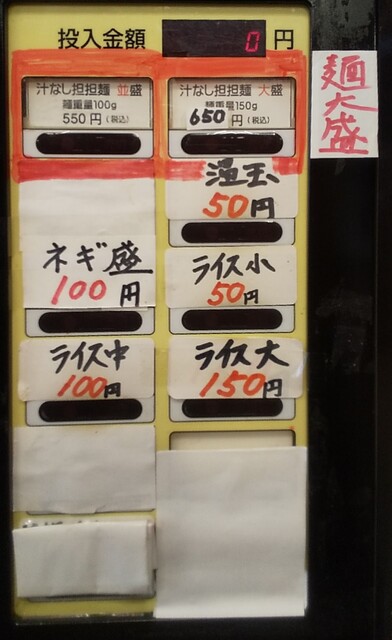 投入金額 0 円
汁なし担担麺 並盛
麺重量100g
550円(税込)
汁なし担担麺 大盛
麺重量150g
650円(税込)
麺大盛
温玉
50円
ネギ盛
100円
ライス小
50円
ライス中
100円
ライス大
150円